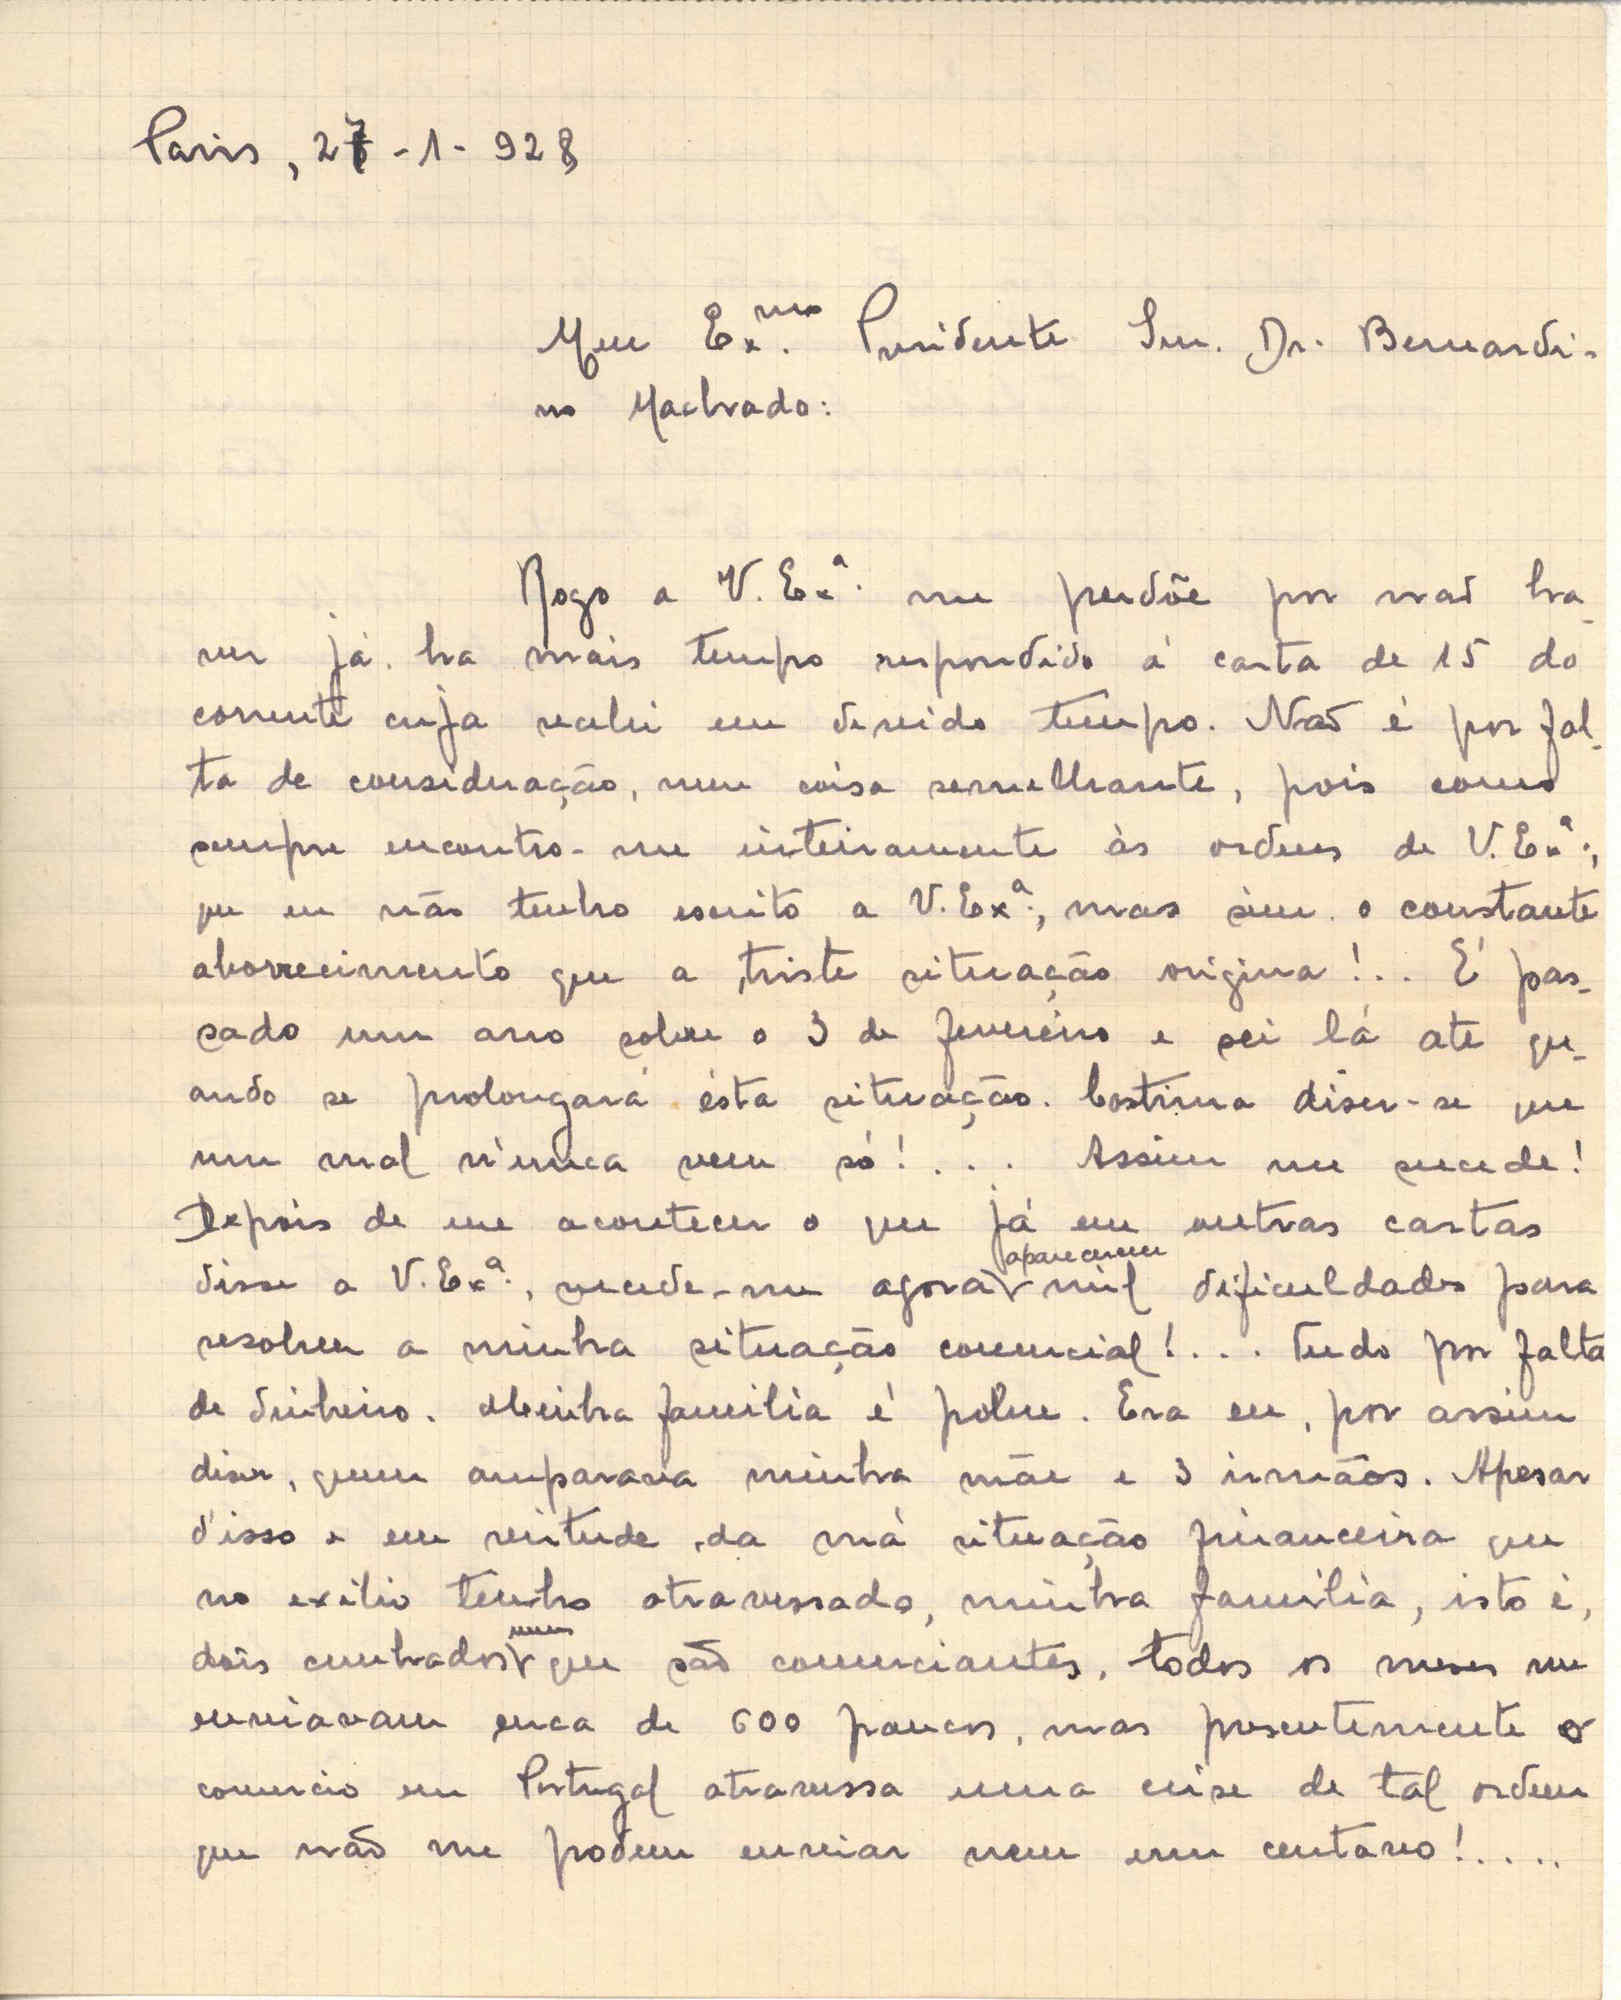 Paris, 27-1-928
Meu Exmo. Presidente Snr. Dr. Bernardi-
no Machado:
Rogo a V. Exª. me perdõe por não ha-
ver já ha mais tempo respondido á carta de 15 do
corrente cuja recebi em devido tempo. Não é por fal-
ta de consideração, nem coisa semelhante, pois como
sempre encontro-me inteiramente às ordens de V. Exª.,
que eu não tenho escrito a V. Exª., mas sim o constante
aborrecimento que a triste situação origina!.. É pas-
sado um ano sobre o 3 de fevereiro e sei lá até qu-
ando se prolongará ésta situação. Costuma diser-se que
um mal n'unca vem só!... Assim me sucede!
Depois de me acontecer o que já em outras cartas
disse a V. Exª., sucede-me agora aparecerem mil dificuldades para
resolver a minha situação comercial!... Tudo por falta
de dinheiro. Minha familia é pobre. Era eu, por assim
diser, quem amparava minha mãe e 3 irmãos. Apesar
d'isso e em virtude da má situação financeira que
no exilio tenho atravessado, minha familia, isto é,
dois cunhados meus que são comerciantes, todos os meses me
enviavam cerca de 600 francos, mas presentemente o
comercio em Portugal atravessa uma crise de tal ordem
que não me podem enviar nem um centavo!....